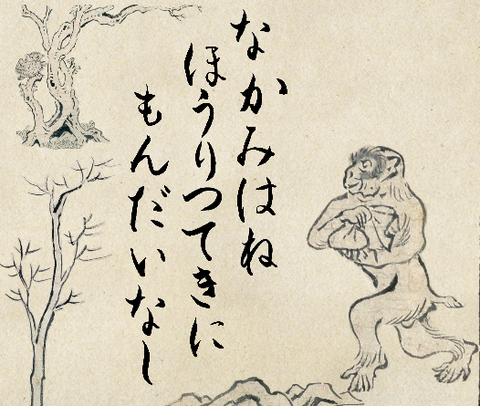 なかみはね
ほうりつてきに
もんだいなし